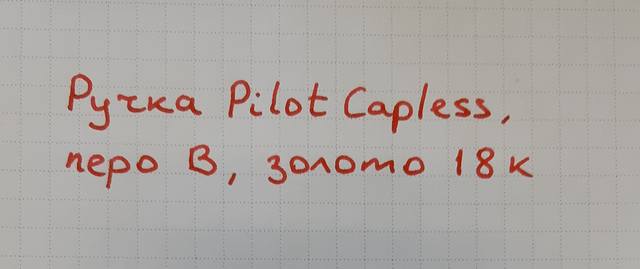 Ручка Pilot Capless,
перо B, золото 18 к